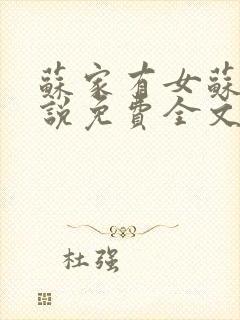 蘇家有女蘇
說免費全文
杜强